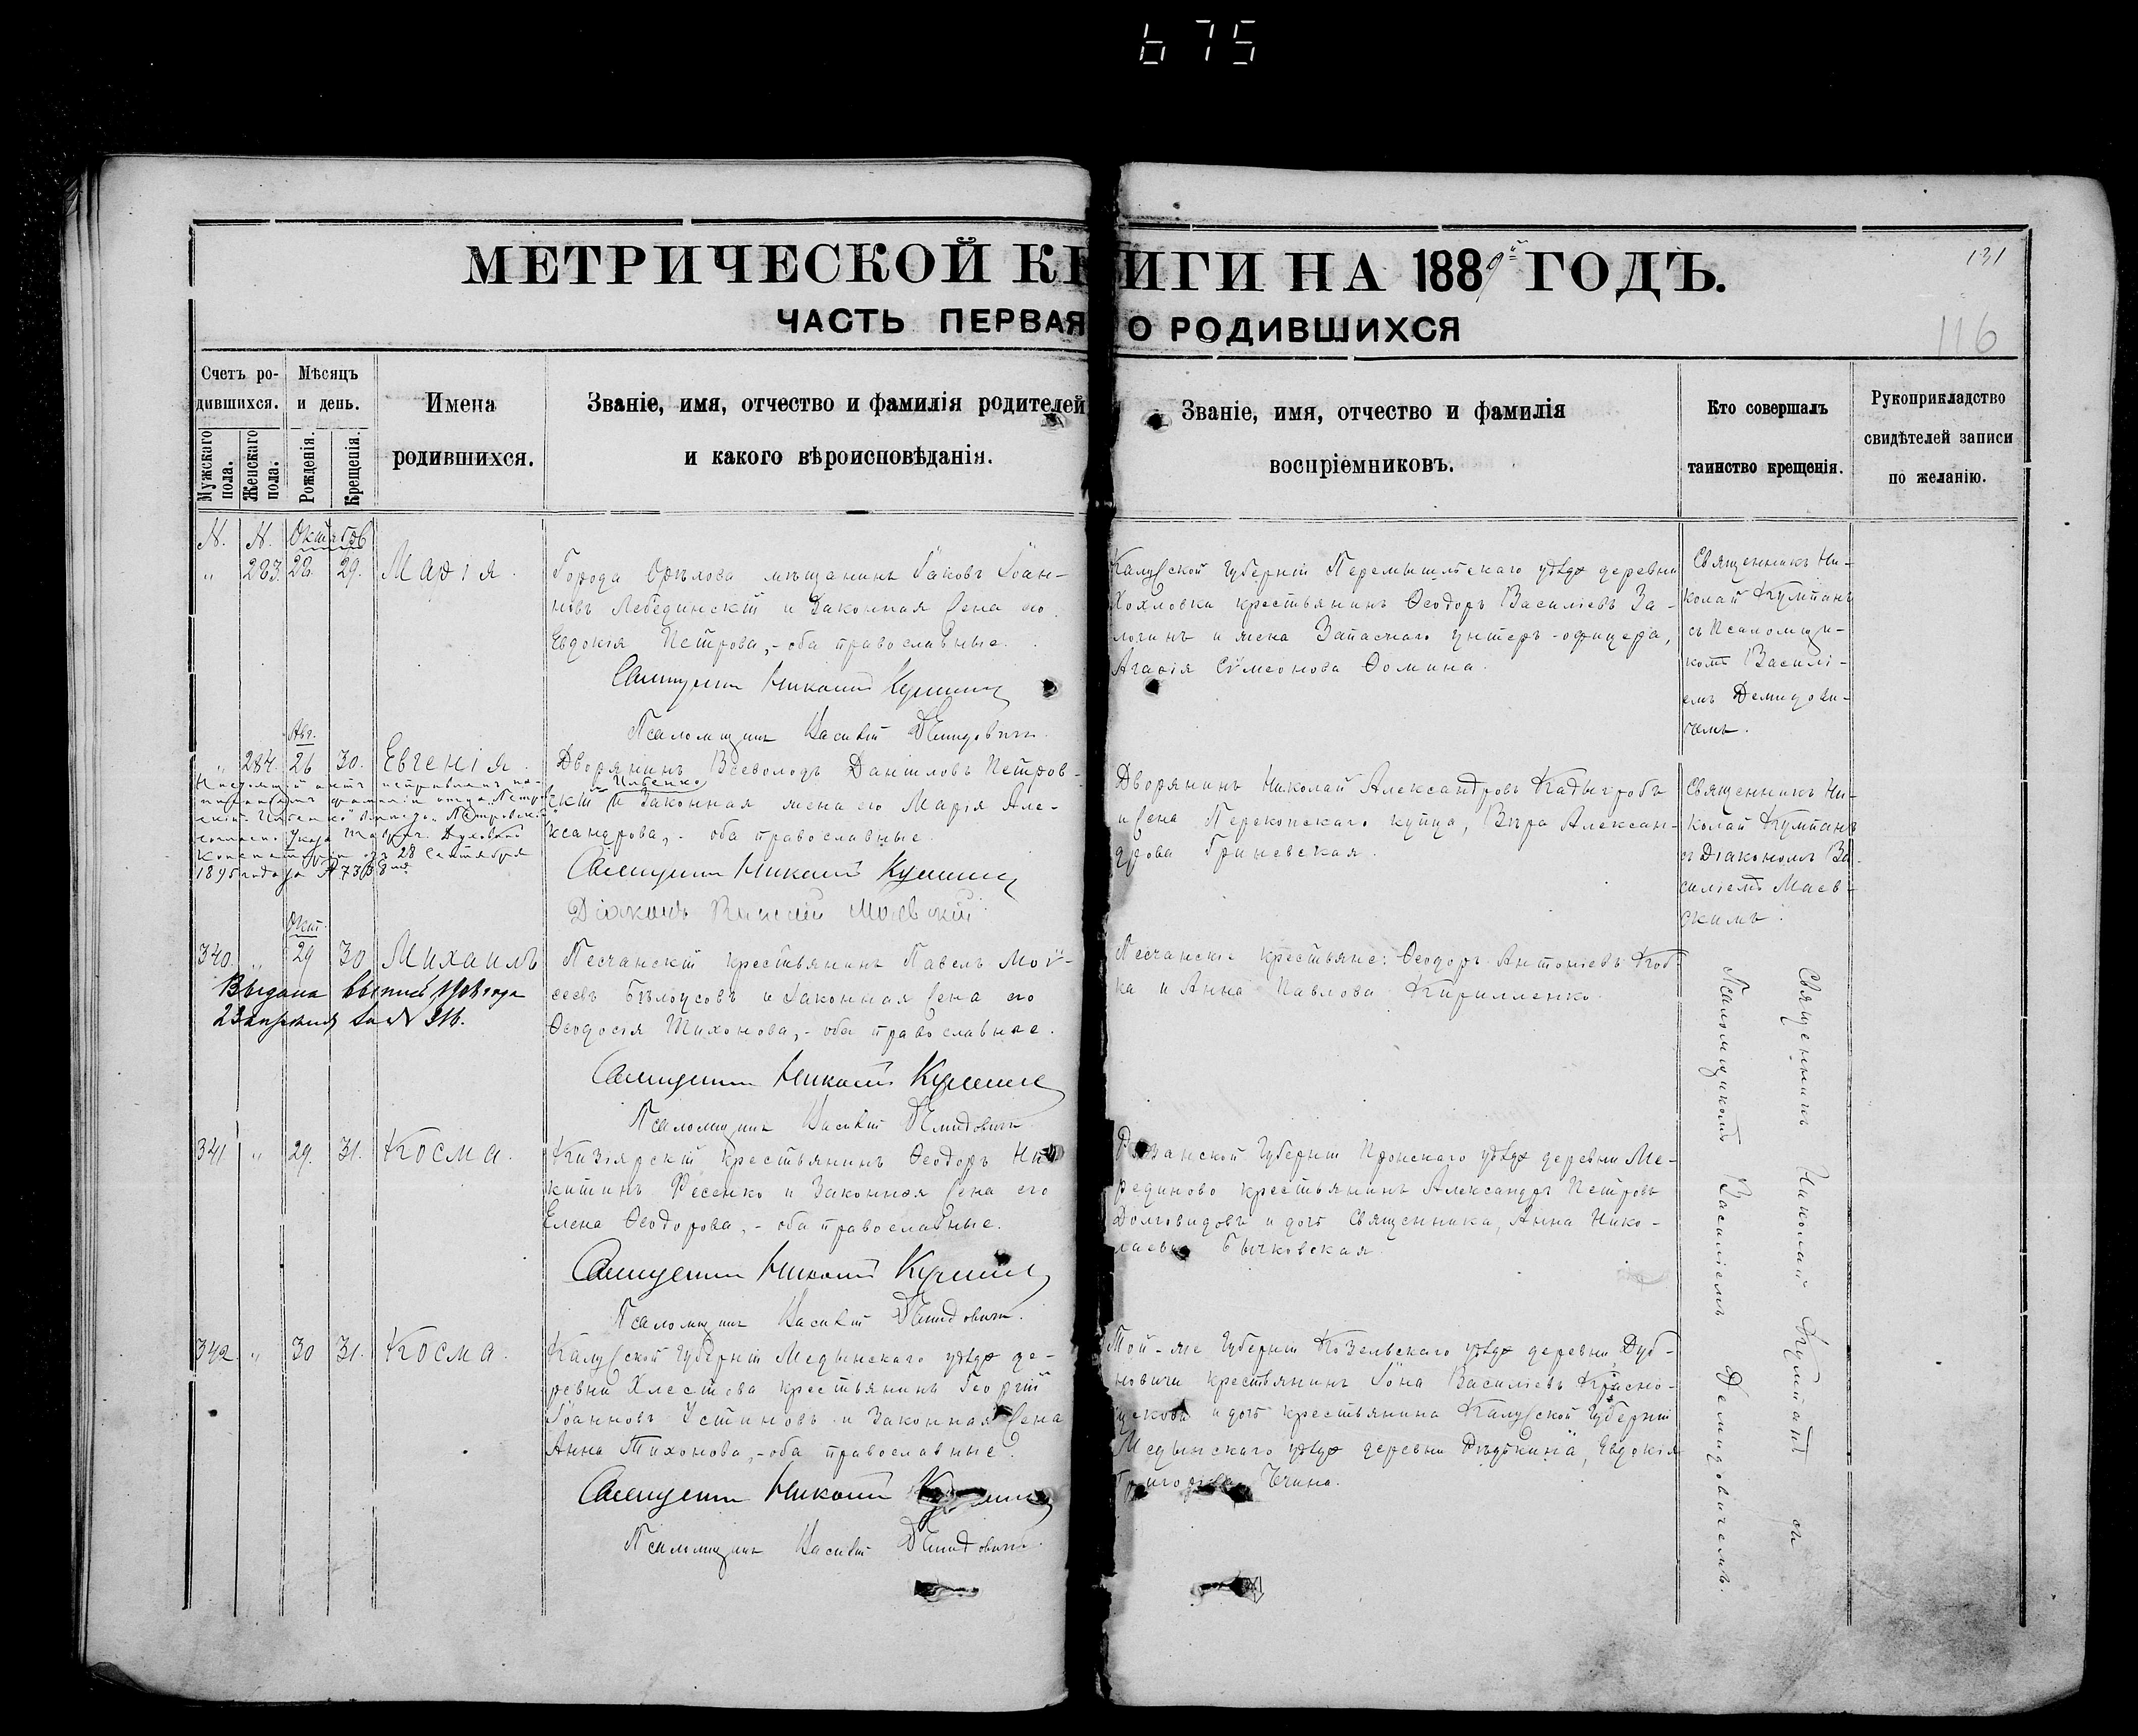 675
МЕТРИЧЕСКОЙ КНИГИ НА 1889й ГОДЪ.
131
ЧАСТЬ ПЕРВАЯ О РОДИВШИХСЯ
116
Счетъ родившихся.
Мужскаго пола.
Женскаго пола.
Мѣсяцъ и день.
Рожденія.
Крещенія.
Имена родившихся.
Званіе, имя, отчество и фамилія родителей
и какого вѣроисповѣданія.
Званіе, имя, отчество и фамилія
воспріемниковъ.
Кто совершалъ
таинство крещенія.
Рукоприкладство
свидѣтелей записи
по желанію.
N. N. Октябр
" 283. 28. 29. Марія.
Города Орѣхова мѣщанинъ Іаковъ Іоан-
новъ Лебединскій и законная жена его
Евдокія Петрова,- оба православные.
Священникъ Николай Кумпанъ
Псаломщикъ Василій Демидовичъ.
Калужской губерніи Перемышльскаго уѣзда деревни
Хохловка крестьянинъ Ѳеодоръ Василіевъ За-
логинъ и жена Запаснаго унтеръ-офицера,
Агафія Сѵмеонова Ѳомина.
Священникъ Ни-
колай Кумпанъ
съ Псаломщи-
комъ Василі-
емъ Демидови-
чемъ.
Авг.
" 284. 26 30. Евгенія.
Дворянинъ Всеволодъ Даніиловъ Петров-
Ильенко
скій и законная жена его Марія Але-
ксандрова,- оба православные.
Священникъ Николай Кумпанъ
Діаконъ Василій Маевскій
Настоящій актъ исправленъ
Указа Таврич. Духовной
Консисторіи отъ 28 Сентября
1895 года за № 7368
Дворянинъ Николай Александровъ Кадыгробъ
и жена Перекопскаго купца, Вѣра Алексан-
дрова Гриневская.
Священникъ Ни-
колай Кумпанъ
съ Діакономъ Ва-
силіемъ Маев-
скимъ.
Окт.
340. " 29 30 Михаилъ
Выдана выпись 1908 года
23 за № 316.
Песчанскій крестьянинъ Павелъ Мой-
сеевъ Бѣлоусовъ и законная жена его
Ѳеодосія Тихонова,- оба православные.
Священникъ Николай Кумпанъ
Псаломщикъ Василій Демидовичъ
Песчанскіе крестьяне: Ѳеодоръ Антоніевъ Коб-
ка и Анна Павлова Кирилленко.
Священникъ Николай Кумпанъ съ
Псаломщикомъ Василіемъ Демидовичемъ.
341 " 29. 31. Косма.
Кизіярскій крестьянинъ Ѳеодоръ Ни-
китинъ Фесенко и законная жена его
Елена Ѳеодорова,- оба православные.
Священникъ Николай Кумпанъ
Псаломщикъ Василій Демидовичъ.
Рязанской губерніи Пронскаго уѣзда деревни Ме-
рединово крестьянинъ Александръ Петровъ
Долговидовъ и дочь Священника, Анна Нико-
лаева Бычковская.
342. " 30 31. Косма.
Калужской губерніи Медынскаго уѣзда де-
ревни Хлестова крестьянинъ Георгій
Іоанновъ Устиновъ и законная жена
Анна Тихонова,- оба православные.
Священникъ Николай Кумпанъ
Псаломщикъ Василій Демидовичъ.
Той-же губерніи Козельскаго уѣзда деревни Дуб-
новичи крестьянинъ Іона Василіевъ Красно-
щековъ и дочь крестьянина Калужской губерніи
Медынскаго уѣзда деревни Дѣдѣкина, Евдокія
Григоріева